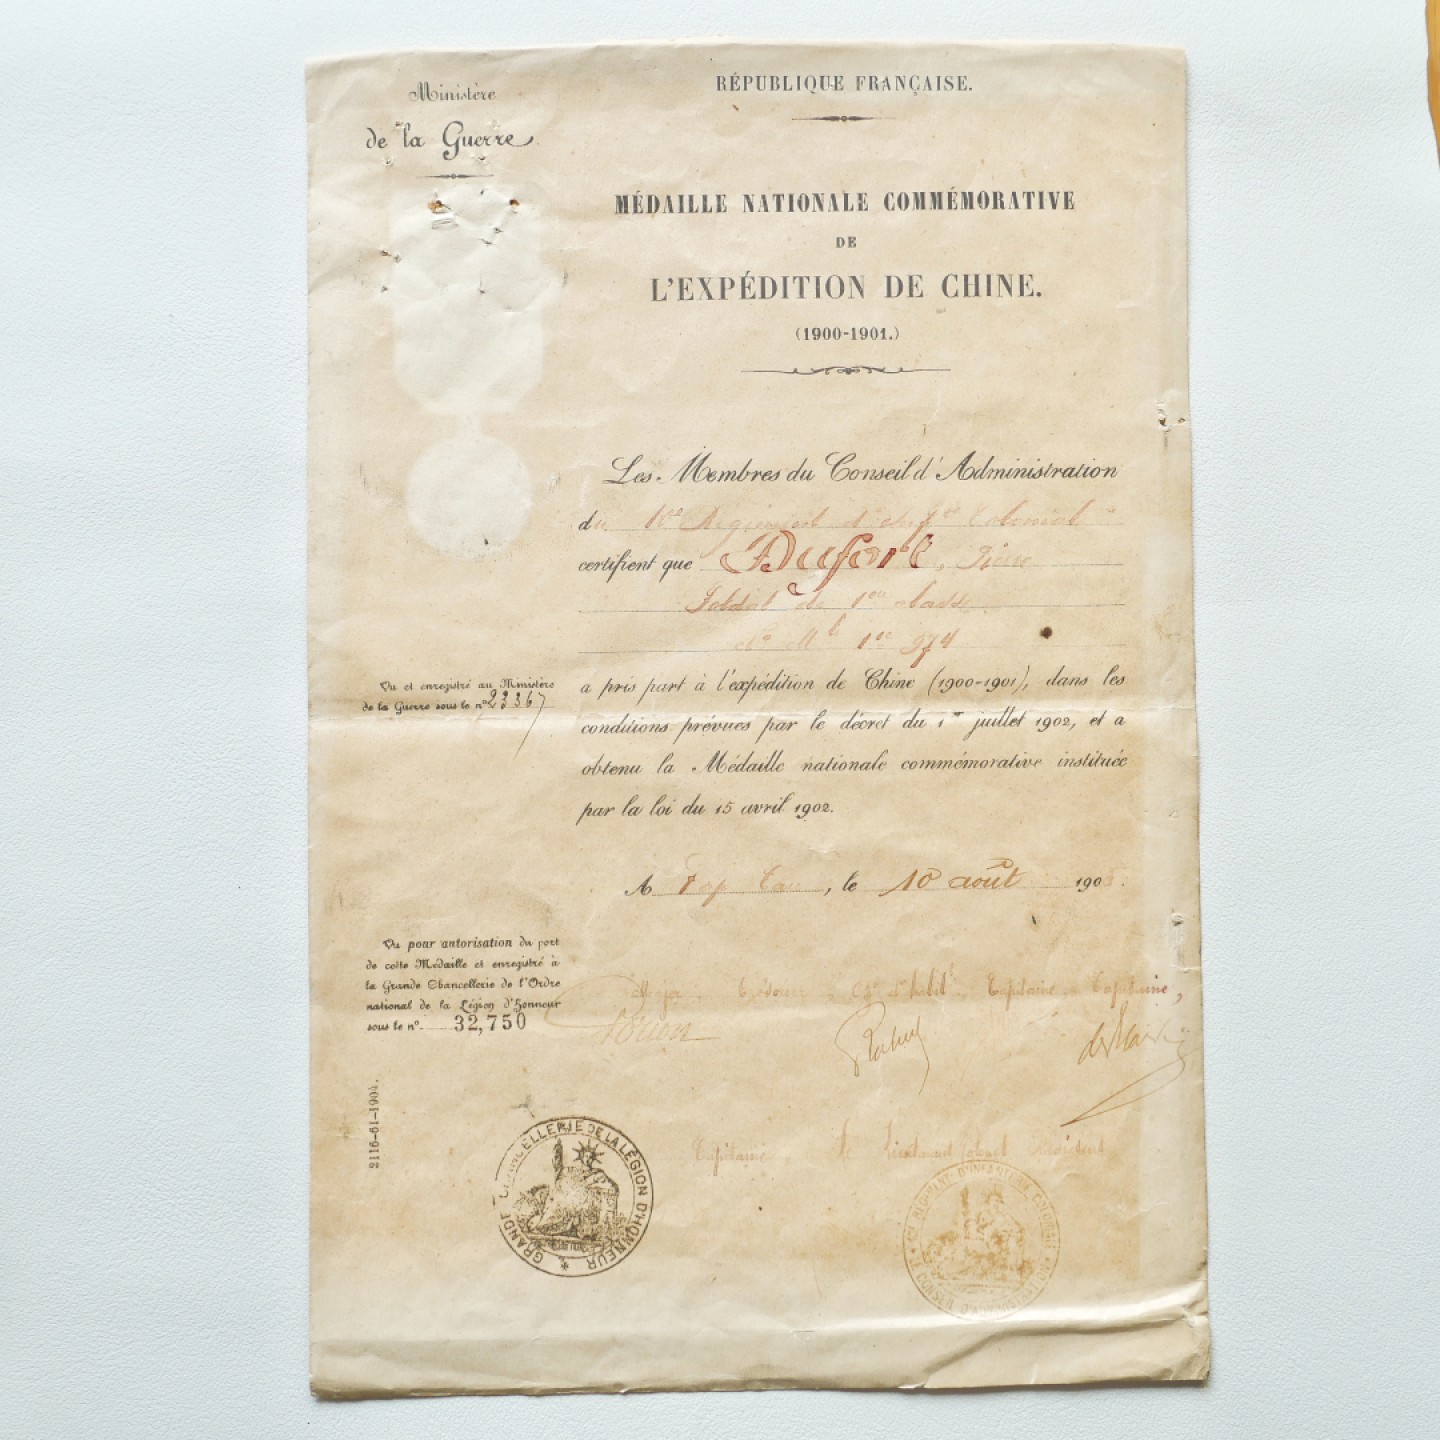 Ministère
de la Guerre
RÉPUBLIQUE FRANÇAISE.
MÉDAILLE NATIONALE COMMÉMORATIVE
DE
L'EXPÉDITION DE CHINE.
(1900-1901.)
Les Membres du Conseil d'Administration
du Régiment Colonial
certifient que Dufort,
Soldat de 1ère classe
a pris part à l'expédition de Chine (1900-1901), dans les
conditions prévues par le décret du 1er juillet 1902, et a
obtenu la Médaille nationale commémorative instituée
par la loi du 15 avril 1902.
A , le 10 août 190
Vu et enregistré au Ministère
de la Guerre sous le n° 23367
Vu pour autorisation du port
de cette Médaille et enregistré à
la Grande Chancellerie de l'Ordre
national de la Légion d'honneur
sous le n° 32,750
Major, Capitaine, Capitaine,
2116-61-1904.
Capitaine, Le Lieutenant Colonel Président
GRANDE CHANCELLERIE DE LA LÉGION D'HONNEUR
RÉGIMENT D'INFANTERIE COLONIALE
LE CONSEIL D'ADMINISTRATION